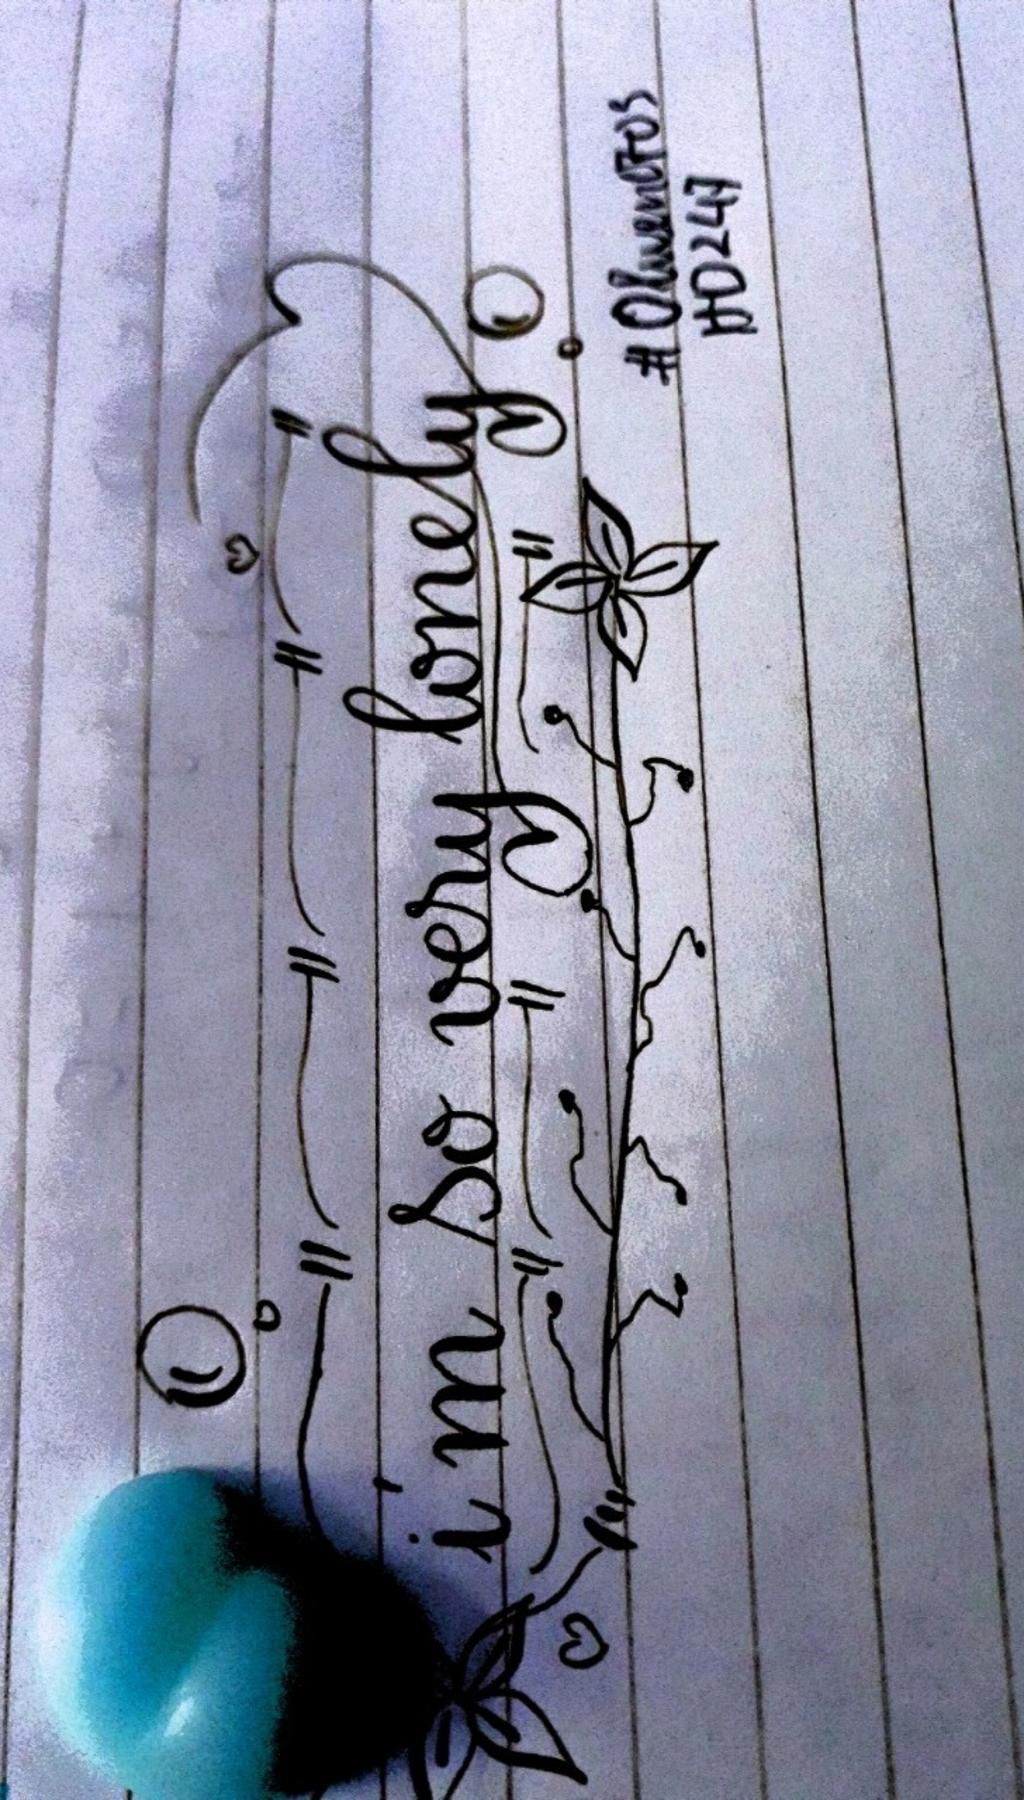 i'm so very lonely
#Olmentos
HD247